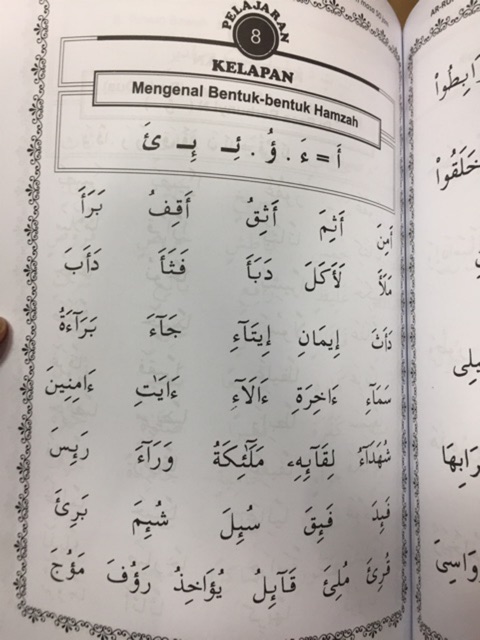 PELAJARAN
8
KELAPAN
Mengenal Bentuk-bentuk Hamzah
أَ = ءَ . ؤُ . ئِـ ـئِـ ئَ
أَمِنَ أَثِمَ أَثِقُ أَقِفُ بَرَأَ
مَلَأَ لَأَكَلَ دَبَأَ فَثَأَ دَأَبَ
دَأَثَ إِيمَانِ إِيتَآءِ جَآءَ بَرَآءَةُ
سَمَآءِ ءَاخِرَةِ ءَالَآءِ ءَايَتِ ءَامِنِينَ
شُهَدَآءُ لِقَآئِهِۦ مَلَٓئِكَةُ وَرَآءَ رَئِيسَ
فَئِدَ فَئِقَ سُئِلَ شُئِمَ بَرِئَ
قُرِئَ مُلِئَ قَآئِلُ يُؤَاخِذُ رَؤُفَ مَؤُجَ
خَلَقُواْ